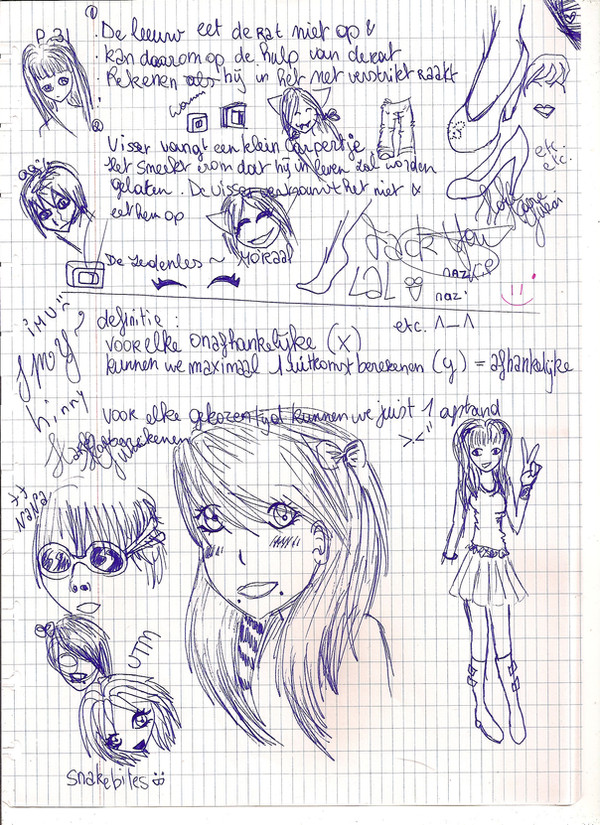 P.31
① De leeuw eet de rat niet op &
kan daarom op de hulp van de rat
Rekenen als hij in het net verstrikt raakt
② Visser vangt een klein karpertje
het smeekt erom dat hij in leven zal worden
gelaten. De visser vertrouwt het niet &
eet hem op
De zedenles ~ MORAAL
etc.
etc.
Jack You
LAL
nazi
nazi
definitie :
etc. ^_^
voor elke onafhankelijke (x)
kunnen we maximaal 1 uitkomst berekenen (y) = afhankelijke
voor elke gekozen tijd kunnen we juist 1 afstand
berekenen
><"
iMU
hinny
NaNa
UTM
snakebites